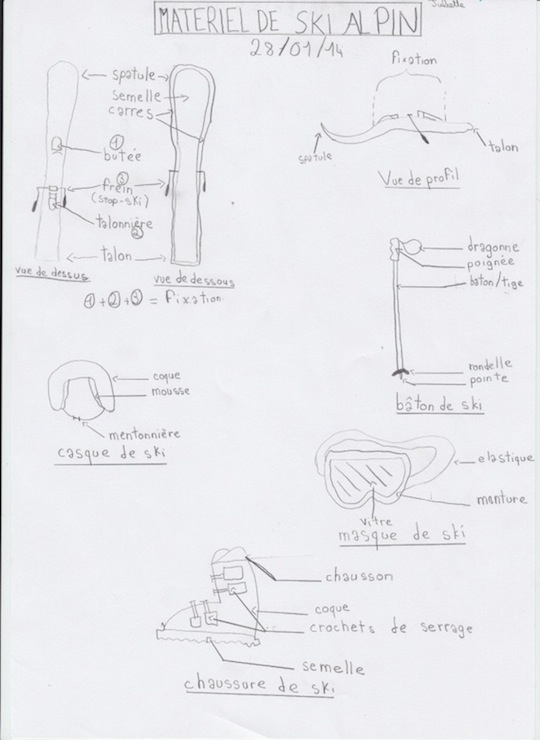 Juliette
MATERIEL DE SKI ALPIN
28/01/14
spatule
semelle
carres
①
butée
③
frein
(stop-ski)
talonnière
②
talon
vue de dessus
vue de dessous
①+②+③ = fixation
fixation
spatule
talon
Vue de profil
dragonne
poignée
baton/tige
rondelle
pointe
bâton de ski
coque
mousse
mentonnière
casque de ski
elastique
monture
vitre
masque de ski
chausson
coque
crochets de serrage
semelle
chaussure de ski